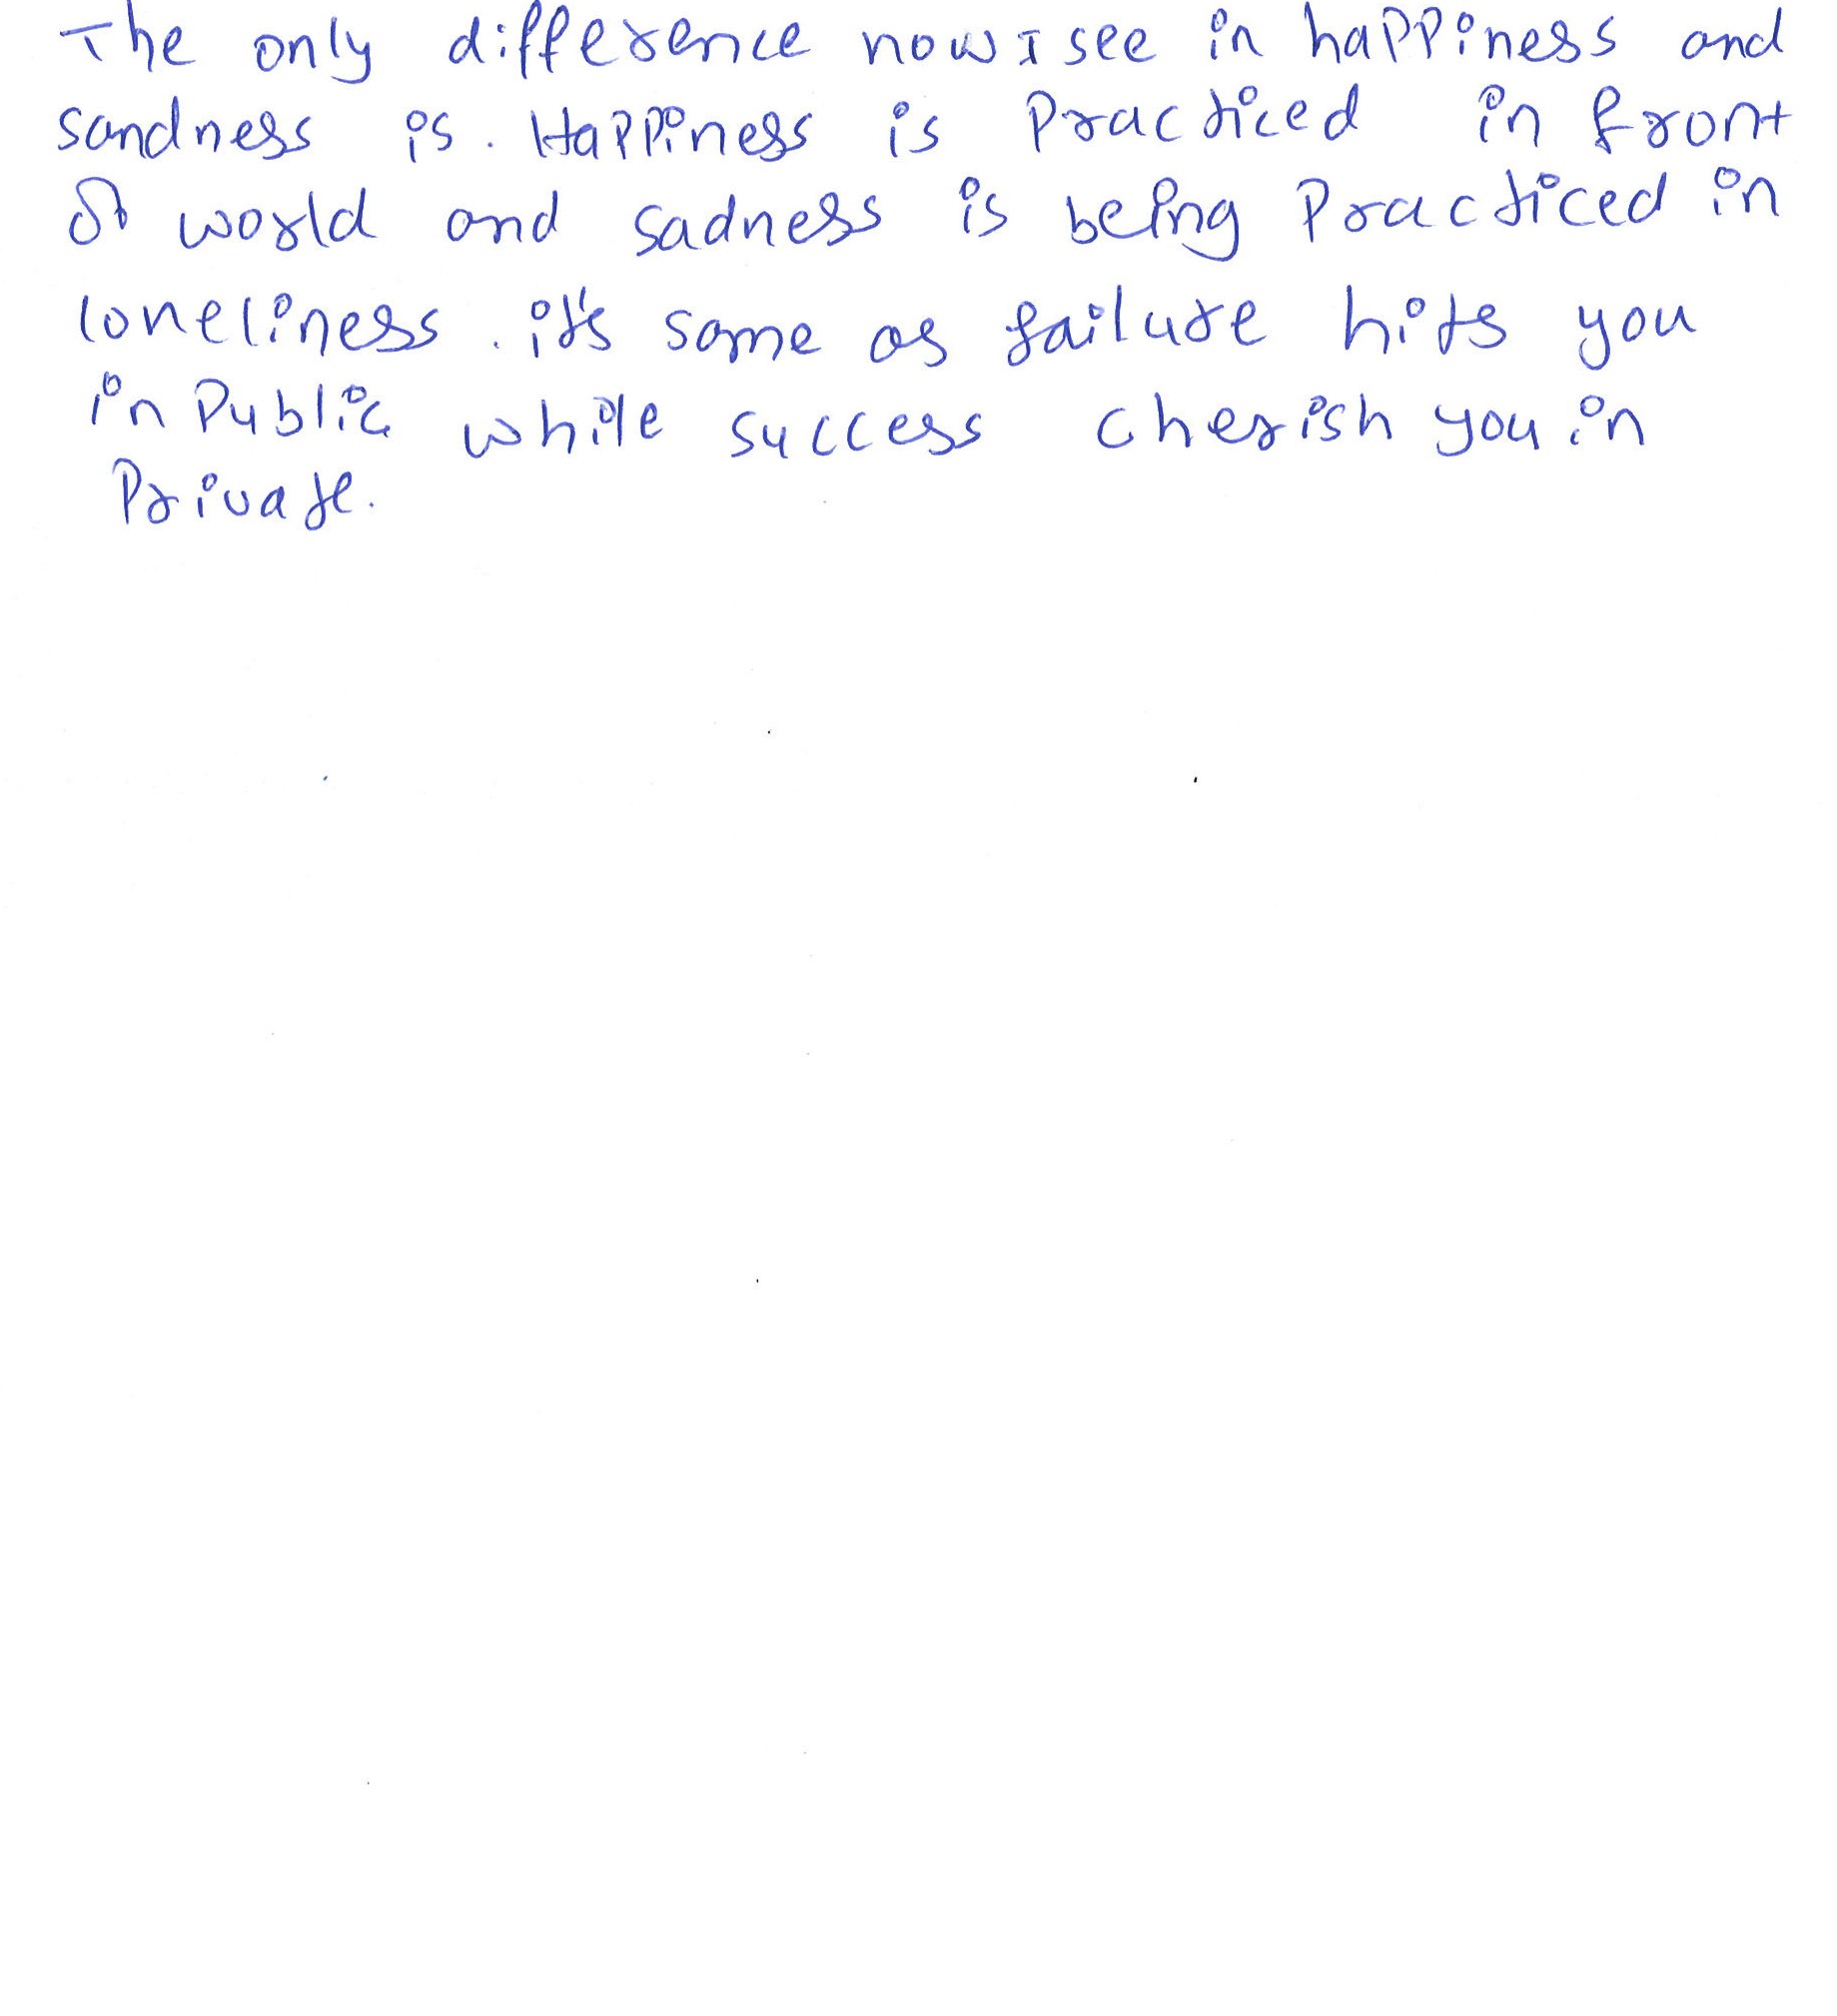 The only difference now I see in happiness and
sandness is. Happiness is Practiced in front
of world and sadness is being Practiced in
loneliness. it's same as failure hits you
in Public while success cherish you in
Private.